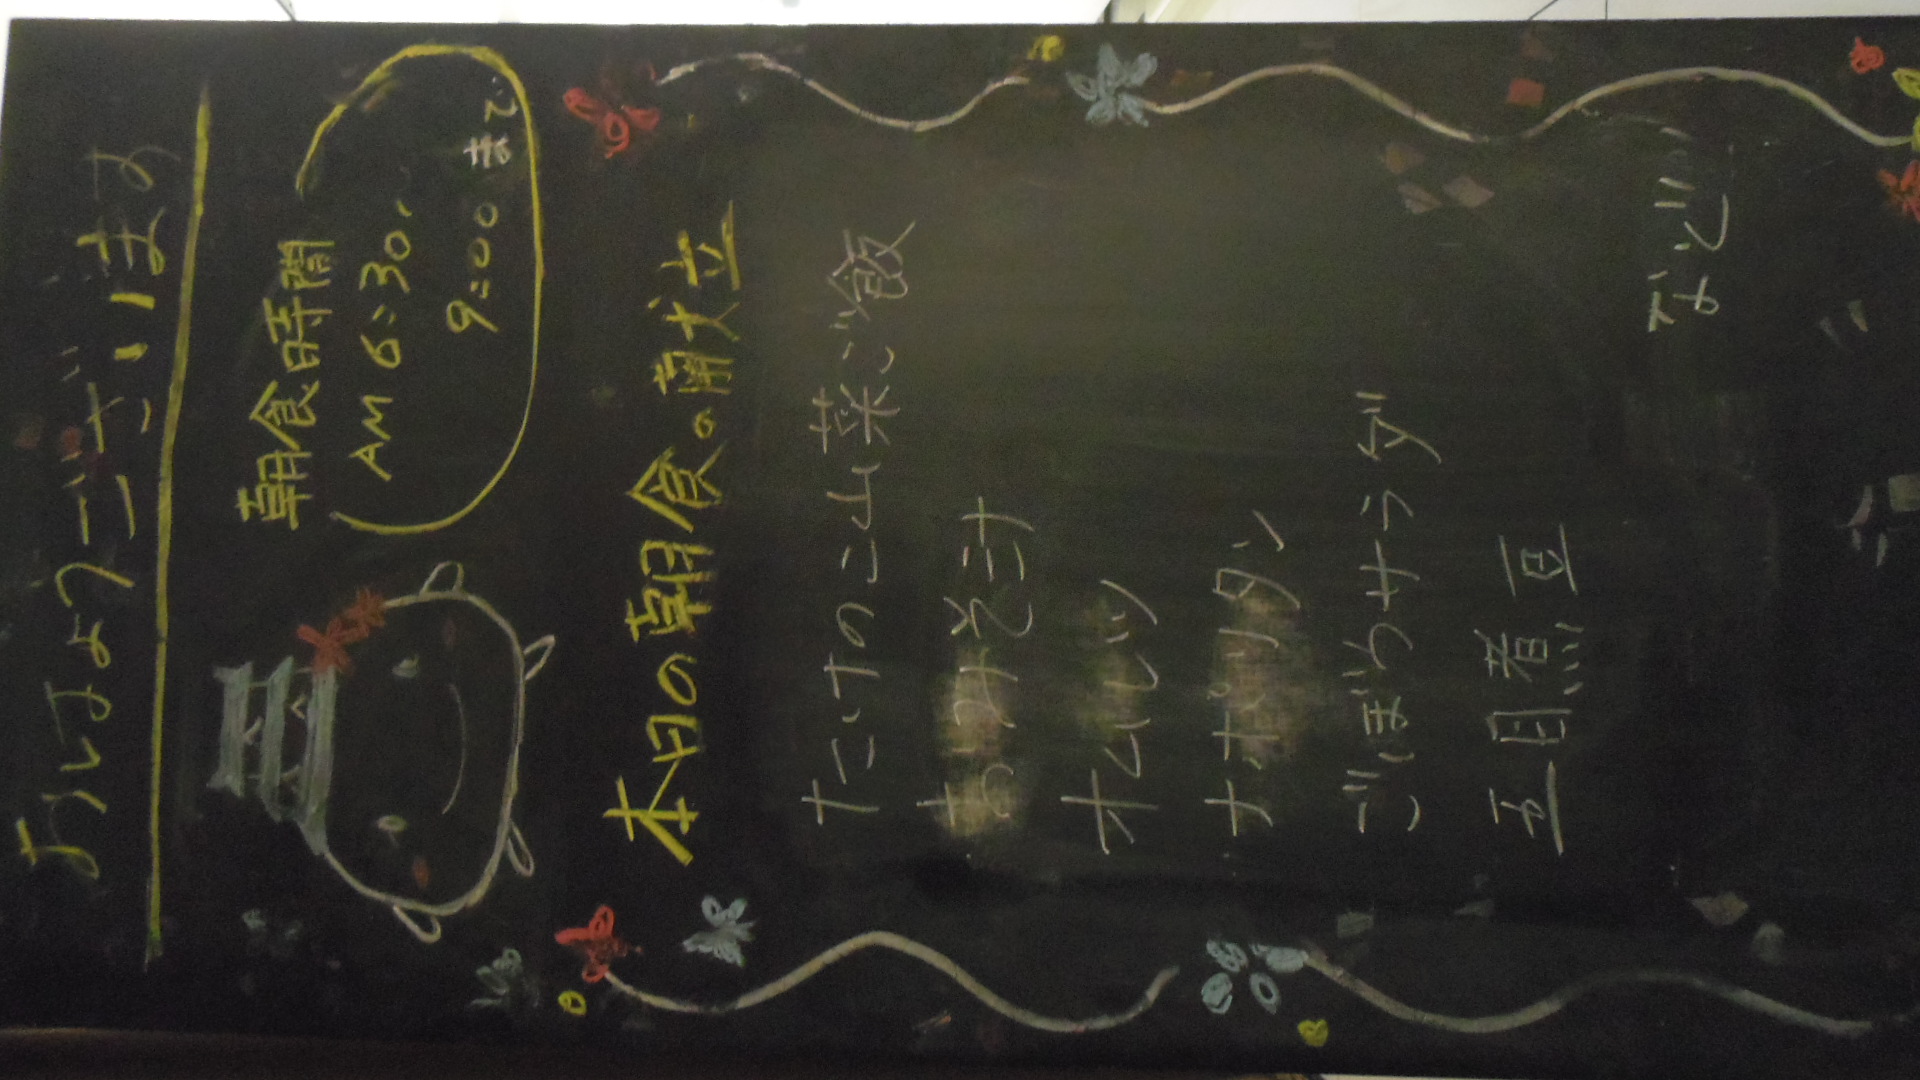 おはようございます
朝食時間
AM 6:30〜
9:00 まで
本日の朝食の献立
たけのこ山菜ご飯
おみそ汁
オムレツ
ナポリタン
ごぼうサラダ
五目煮豆
など…